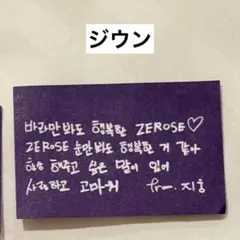 ジウン
바라만 봐도 행복한 ZEROSE♡
ZEROSE 눈만 봐도 행복한 거 같아
항상 해주고 싶은 말이 있어
사랑하고 고마워
from. 지웅